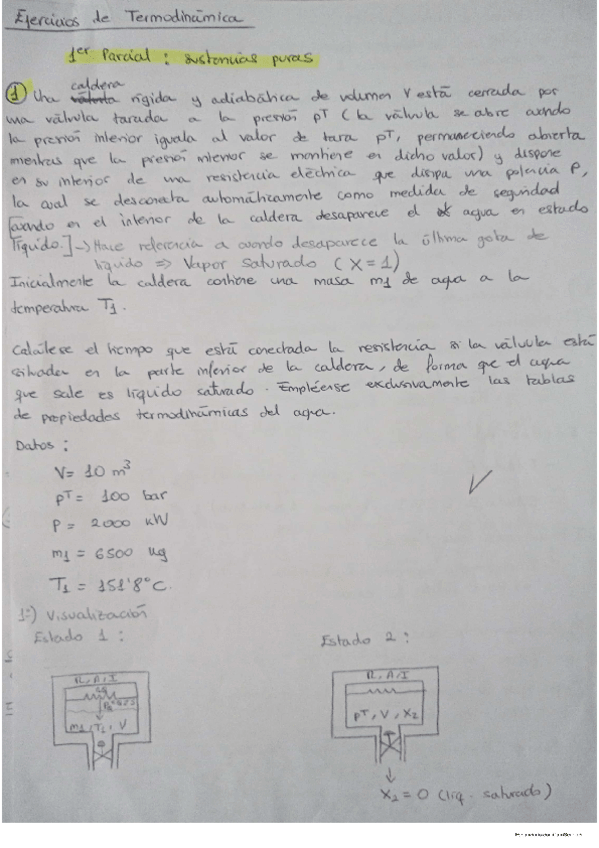 Ejercicios de Termodinámica
1er Parcial : sustancias puras
① Una caldera rígida y adiabática de volumen V está cerrada por
una válvula tarada a la presión pT (la válvula se abre cuando
la presión interior iguala al valor de tara pT, permaneciendo abierta
mientras que la presión interior se mantiene en dicho valor) y dispone
en su interior de una resistencia eléctrica que disipa una potencia P,
la cual se desconecta automáticamente como medida de seguridad
[cuando en el interior de la caldera desaparece el agua en estado
líquido.] -> Hace referencia a cuando desaparece la última gota de
líquido => Vapor saturado (X = 1)
Inicialmente la caldera contiene una masa m1 de agua a la
temperatura T1.
Calcúlese el tiempo que está conectada la resistencia si la válvula está
situada en la parte inferior de la caldera, de forma que el agua
que sale es líquido saturado. Empléense exclusivamente las tablas
de propiedades termodinámicas del agua.
Datos :
V = 10 m³
pT = 100 bar
P = 2000 kW
m1 = 6500 kg
T1 = 151'8°C.
1º) Visualización
Estado 1 : Estado 2 :
R, A, I R, A, I
m1, T1, V pT, V, X2
X2 = 0 (líq. saturado)